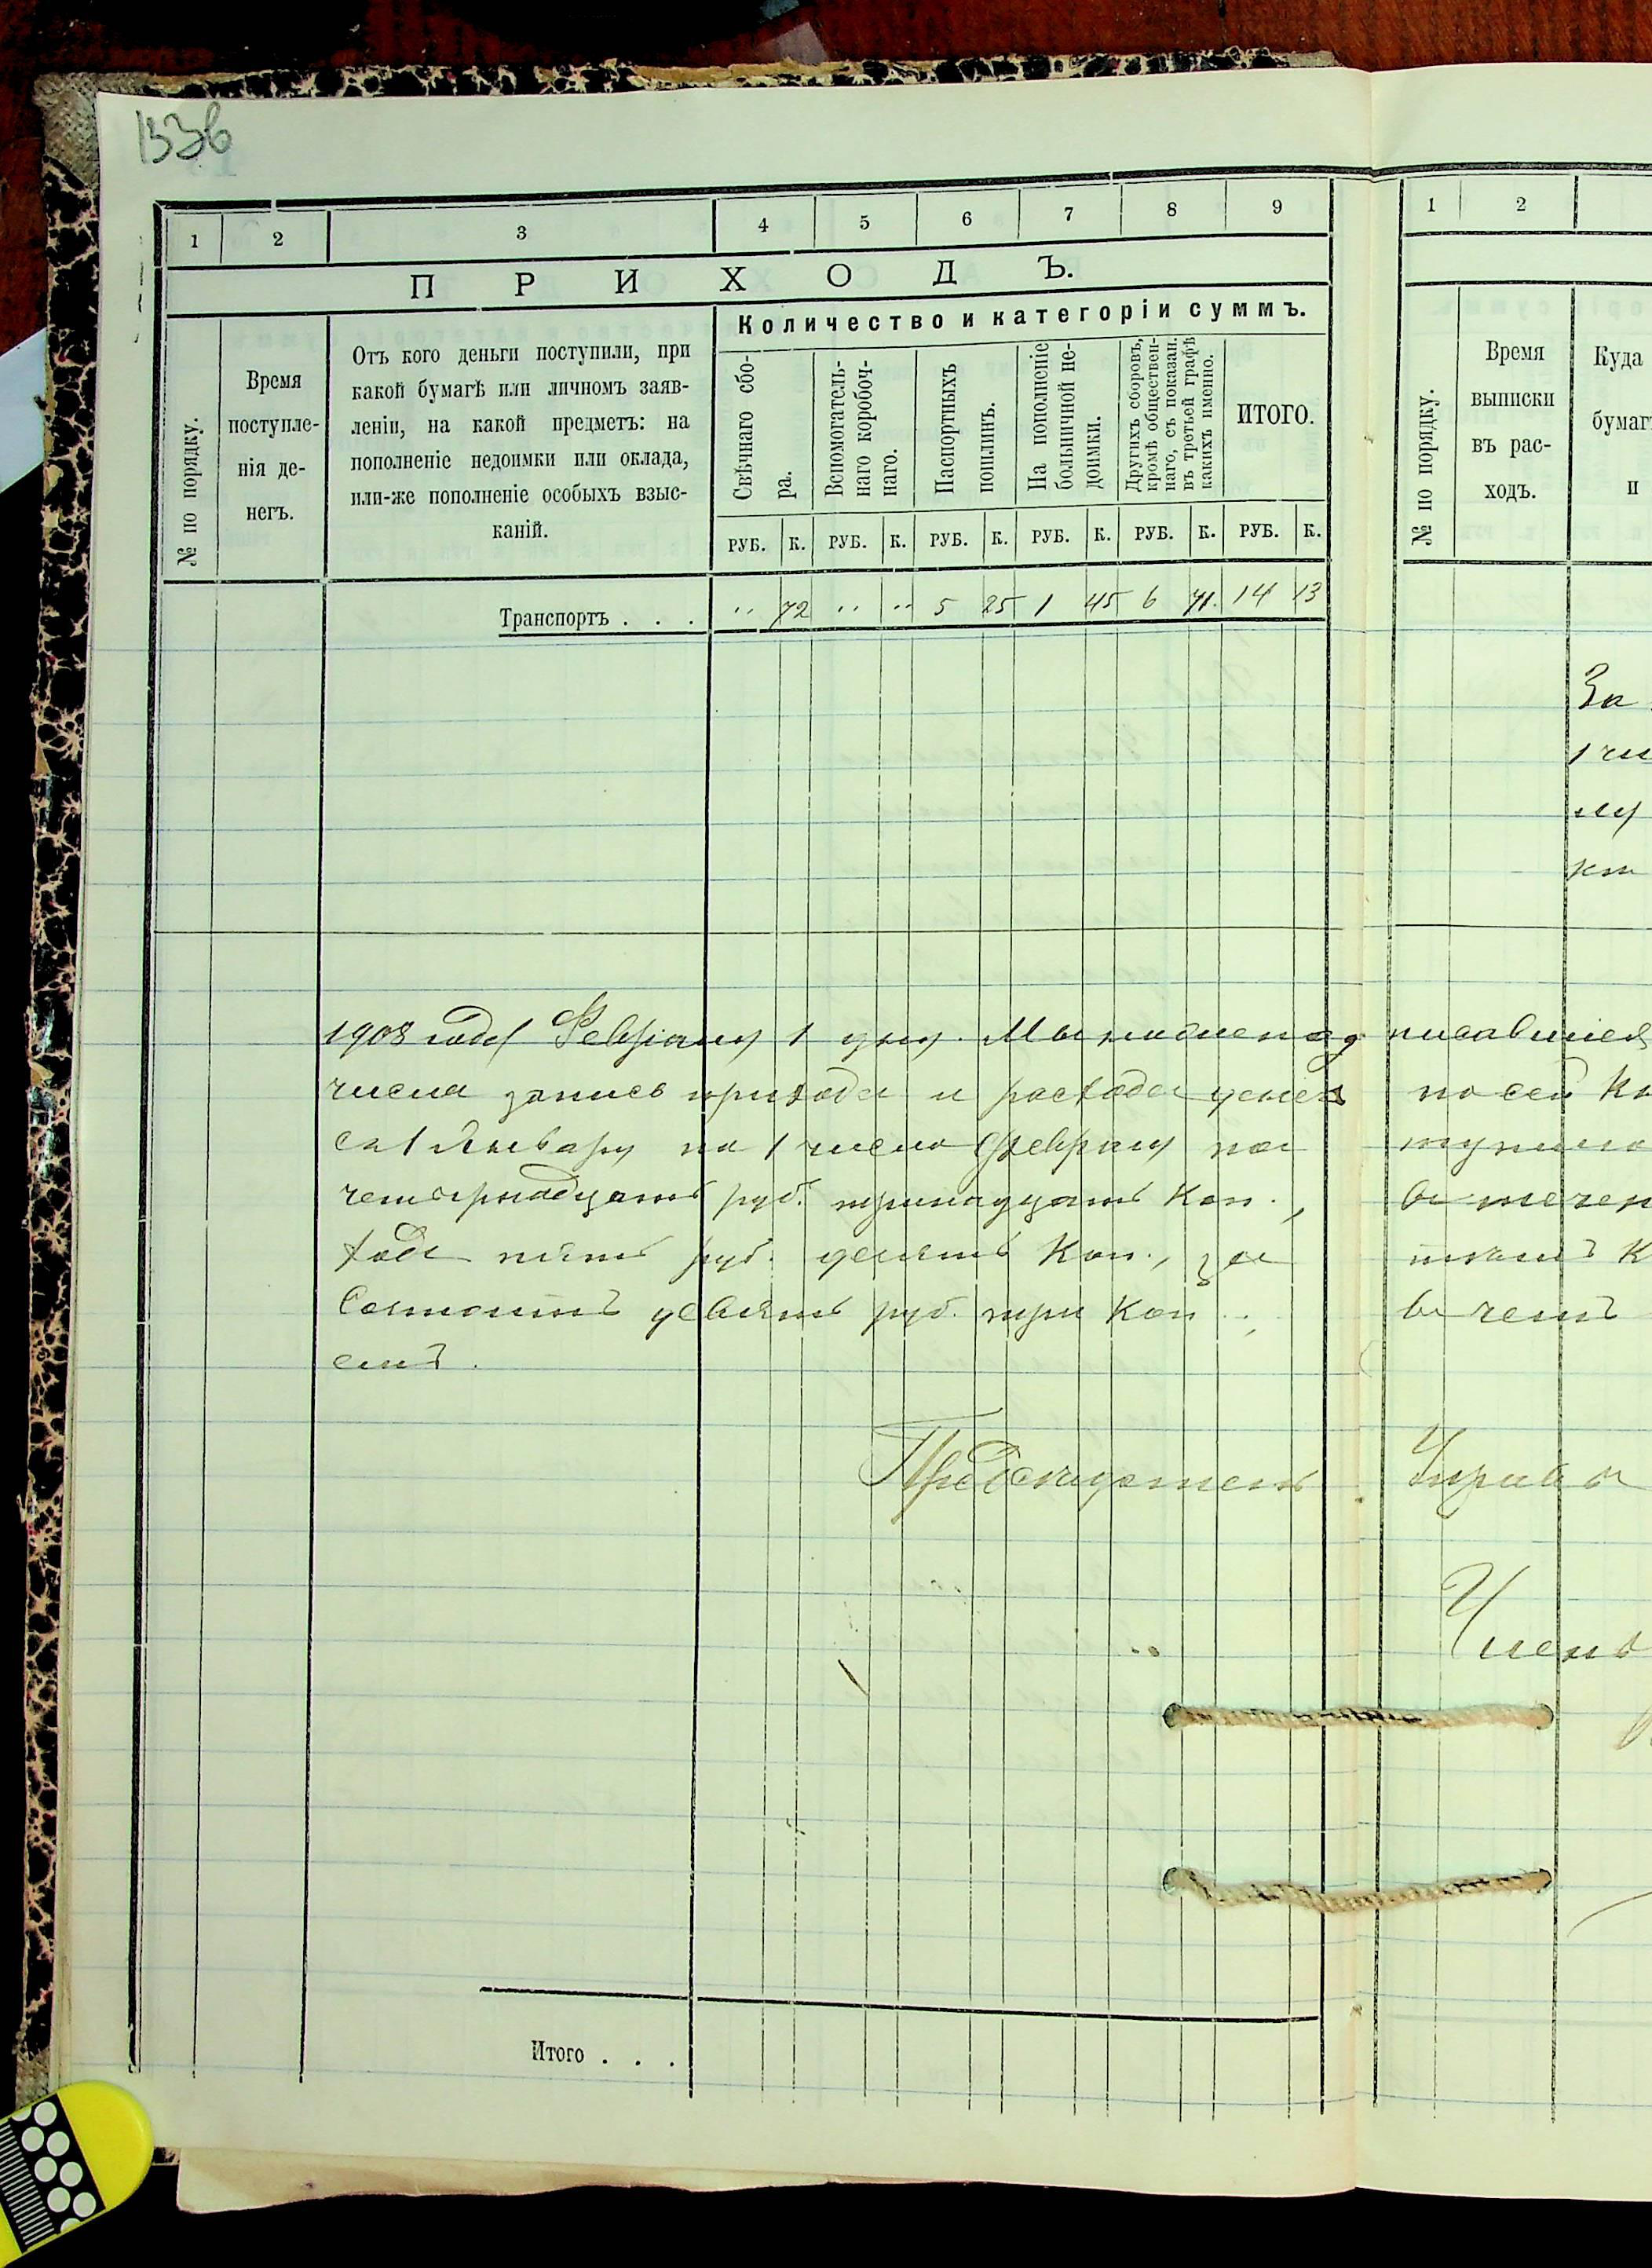 133б
1 2 3 4 5 6 7 8 9
ПРИХОДЪ.
Количество и категоріи суммъ.
№ по порядку.
Время
поступле-
нія де-
негъ.
Отъ кого деньги поступили, при
какой бумагѣ или личномъ заяв-
леніи, на какой предметъ: на
пополненіе недоимки или оклада,
или-же пополненіе особыхъ взыс-
каній.
Свѣчнаго сбо-
ра.
Вспомогатель-
наго коробоч-
наго.
Паспортныхъ
пошлинъ.
На пополненіе
больничной не-
доимки.
Другихъ сборовъ,
кромѣ обществен-
наго, съ показан.
въ третьей графѣ
какихъ именно.
ИТОГО.
РУБ. К. РУБ. К. РУБ. К. РУБ. К. РУБ. К. РУБ. К.
Транспортъ . . . " 72 " " 5 25 1 45 6 71. 14 13
1908 года Февраля 1 дня. Мы нижепод
числа запись прихода и расхода денегъ
съ 1 Января по 1 число Февраля
четырнадцать руб. тринадцать коп.,
хода пять руб. десять коп., за
Состоитъ девять руб. три коп.,
емъ.
Предсѣдатель
Итого . . .
1 2
№ по порядку.
Время
выписки
въ рас-
ходъ.
Куда
бумаг
и
За
писавшіеся
по сей
Управы